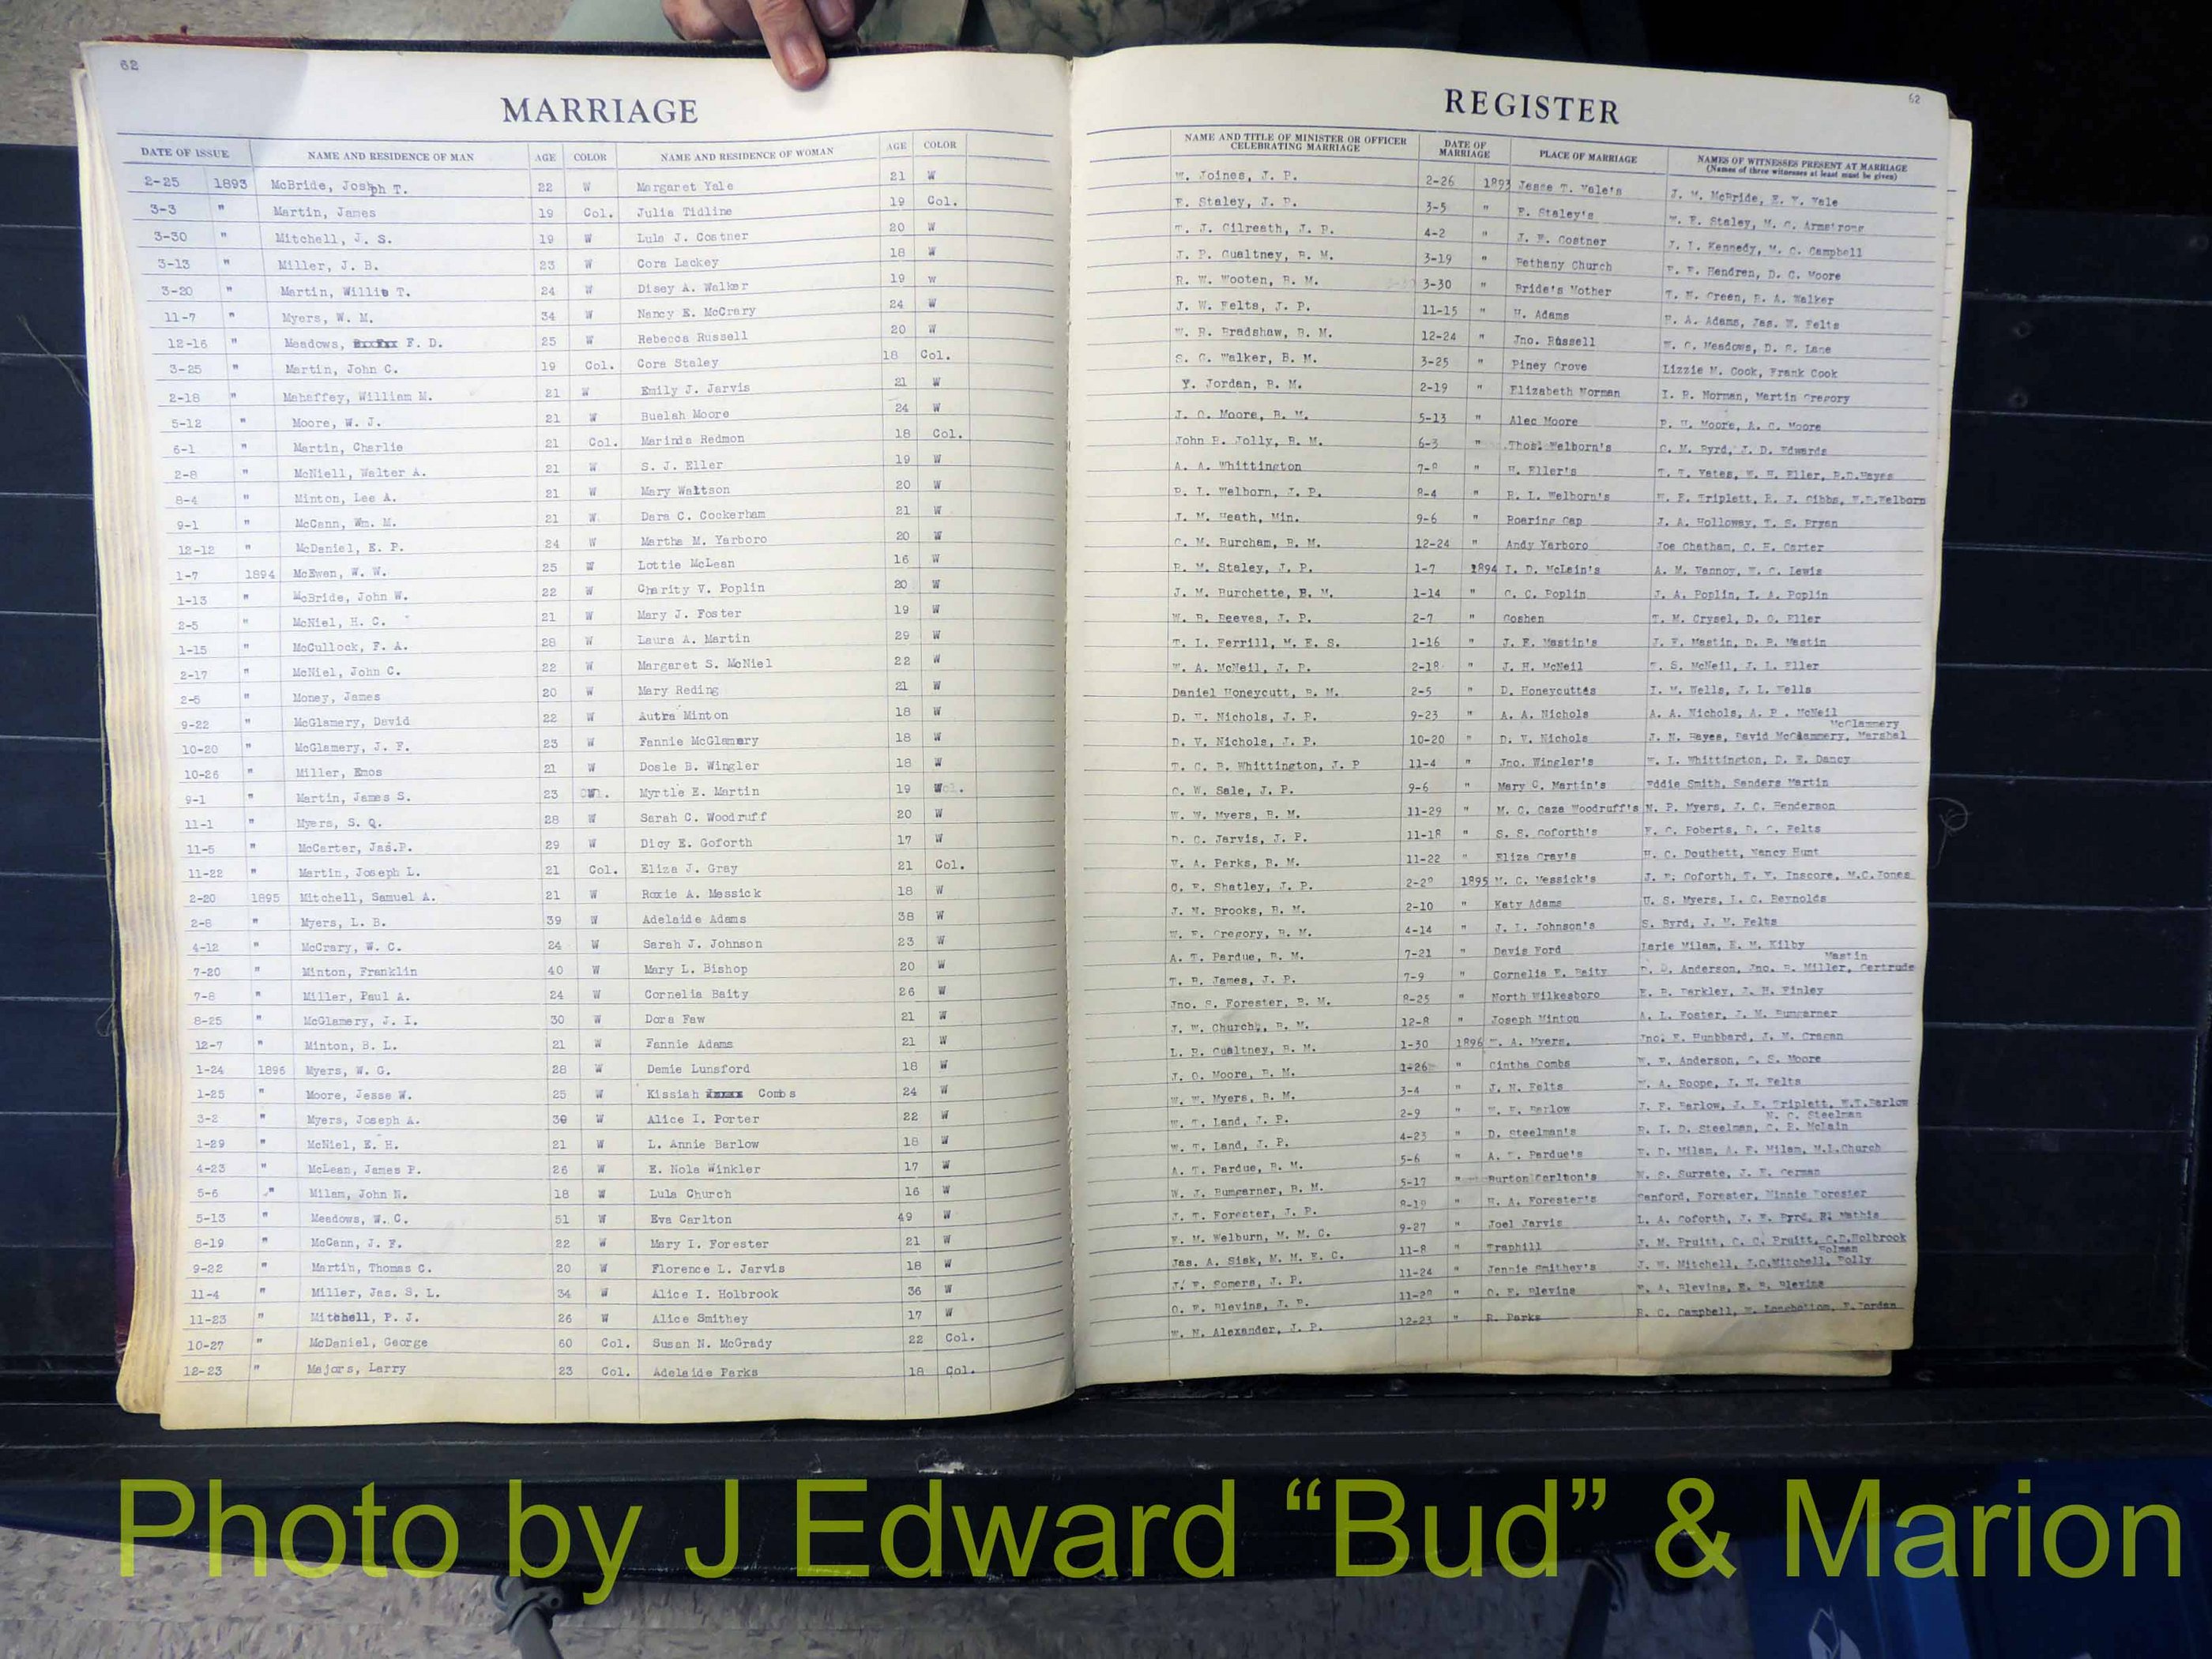 62
MARRIAGE
DATE OF ISSUE NAME AND RESIDENCE OF MAN AGE COLOR NAME AND RESIDENCE OF WOMAN AGE COLOR
2-25 1893 McBride, Joseph T. 22 W Margaret Yale 21 W
3-3 " Martin, James 19 Col. Julia Tidline 19 Col.
3-30 " Mitchell, J. S. 19 W Lula J. Costner 20 W
3-13 " Miller, J. B. 23 W Cora Lackey 18 W
3-20 " Martin, Willie T. 24 W Disey A. Walker 19 w
11-7 " Myers, W. M. 34 W Nancy E. McCrary 24 W
12-16 " Meadows, F. D. 25 W Rebecca Russell 20 W
3-25 " Martin, John C. 19 Col. Cora Staley 18 Col.
2-18 " Mahaffey, William M. 21 W Emily J. Jarvis 21 W
5-12 " Moore, W. J. 21 W Buelah Moore 24 W
6-1 " Martin, Charlie 21 Col. Marinda Redmon 18 Col.
2-8 " McNiell, Walter A. 21 W S. J. Eller 19 W
8-4 " Minton, Lee A. 21 W Mary Waltson 20 W
9-1 " McCann, Wm. M. 21 W Dara C. Cockerham 21 W
12-12 " McDaniel, E. P. 24 W Martha M. Yarboro 20 W
1-7 1894 McEwen, W. W. 25 W Lottie McLean 16 W
1-13 " McBride, John W. 22 W Charity V. Poplin 20 W
2-5 " McNiel, H. C. 21 W Mary J. Foster 19 W
1-15 " McCullock, F. A. 28 W Laura A. Martin 29 W
2-17 " McNiel, John C. 22 W Margaret S. McNiel 22 W
2-5 " Money, James 20 W Mary Reding 21 W
9-22 " McGlamery, David 22 W Autra Minton 18 W
10-20 " McGlamery, J. F. 23 W Fannie McGlamery 18 W
10-26 " Miller, Emos 21 W Dosle B. Wingler 18 W
9-1 " Martin, James S. 23 Myrtle E. Martin 19
11-1 " Myers, S. Q. 28 W Sarah C. Woodruff 20 W
11-5 " McCarter, Jas.P. 29 W Dicy E. Goforth 17 W
11-22 " Martin, Joseph L. 21 Col. Eliza J. Gray 21 Col.
2-20 1895 Mitchell, Samuel A. 21 W Roxie A. Messick 18 W
2-8 " Myers, L. B. 39 W Adelaide Adams 38 W
4-12 " McCrary, W. C. 24 W Sarah J. Johnson 23 W
7-20 " Minton, Franklin 40 W Mary L. Bishop 20 W
7-8 " Miller, Paul A. 24 W Cornelia Baity 26 W
8-25 " McGlamery, J. I. 30 W Dora Faw 21 W
12-7 " Minton, B. L. 21 W Fannie Adams 21 W
1-24 1896 Myers, W. G. 28 W Demie Lunsford 18 W
1-25 " Moore, Jesse W. 25 W Kissiah Combs 24 W
3-2 " Myers, Joseph A. 30 W Alice I. Porter 22 W
1-29 " McNiel, E. H. 21 W L. Annie Barlow 18 W
4-23 " McLean, James P. 26 W E. Nola Winkler 17 W
5-6 " Milam, John N. 18 W Lula Church 16 W
5-13 " Meadows, W. C. 51 W Eva Carlton 49 W
8-19 " McCann, J. F. 22 W Mary I. Forester 21 W
9-22 " Martin, Thomas C. 20 W Florence L. Jarvis 18 W
11-4 " Miller, Jas. S. L. 34 W Alice I. Holbrook 36 W
11-23 " Mitchell, P. J. 26 W Alice Smithey 17 W
10-27 " McDaniel, George 60 Col. Susan N. McGrady 22 Col.
12-23 " Majors, Larry 23 Col. Adelaide Parks 18 Col.
62
REGISTER
NAME AND TITLE OF MINISTER OR OFFICER CELEBRATING MARRIAGE DATE OF MARRIAGE PLACE OF MARRIAGE NAMES OF WITNESSES PRESENT AT MARRIAGE
(Names of three witnesses at least must be given)
W. Joines, J. P. 2-26 1893 Jesse T. Yale's J. M. McBride, E. Y. Yale
F. Staley, J. P. 3-5 " F. Staley's W. E. Staley, M. C. Armstrong
T. J. Gilreath, J. P. 4-2 " J. F. Costner J. I. Kennedy, M. C. Campbell
J. P. Gualtney, B. M. 3-19 " Bethany Church F. F. Hendren, D. C. Moore
R. W. Wooten, B. M. 3-30 " Bride's Mother T. N. Green, R. A. Walker
J. W. Felts, J. P. 11-15 " H. Adams H. A. Adams, Jas. W. Felts
W. R. Bradshaw, B. M. 12-24 " Jno. Russell W. C. Meadows, D. S. Lane
S. G. Walker, B. M. 3-25 " Piney Grove Lizzie M. Cook, Frank Cook
Y. Jordan, B. M. 2-19 " Elizabeth Norman I. R. Norman, Martin Gregory
J. O. Moore, B. M. 5-13 " Alec Moore P. H. Moore, A. C. Moore
John R. Jolly, B. M. 6-3 " Thos. Welborn's C. M. Byrd, J. D. Edwards
A. A. Whittington 7-8 " H. Eller's T. T. Yates, W. H. Eller, R.D.Hayes
R. L. Welborn, J. P. 8-4 " R. L. Welborn's W. F. Triplett, R. J. Gibbs, W.R.Welborn
J. M. Heath, Min. 9-6 " Roaring Gap J. A. Holloway, T. S. Bryan
C. M. Burcham, B. M. 12-24 " Andy Yarboro Joe Chatham, C. H. Carter
R. M. Staley, J. P. 1-7 1894 I. D. McLain's A. M. Vannoy, W. C. Lewis
J. M. Burchette, B. M. 1-14 " C. C. Poplin J. A. Poplin, I. A. Poplin
W. R. Reeves, J. P. 2-7 " Goshen T. M. Crysel, D. C. Eller
T. L. Ferrill, M. E. S. 1-16 " J. E. Mastin's J. F. Mastin, D. P. Mastin
W. A. McNeil, J. P. 2-18 " J. H. McNeil T. S. McNeil, J. L. Eller
Daniel Honeycutt, B. M. 2-5 " D. Honeycutts I. M. Wells, J. L. Wells
D. V. Nichols, J. P. 9-23 " A. A. Nichols A. A. Nichols, A. P. McNeil
McGlammery
D. V. Nichols, J. P. 10-20 " D. V. Nichols J. N. Hayes, David McGlammery, Marshal
T. C. B. Whittington, J. P 11-4 " Jno. Wingler's W. L. Whittington, D. E. Dancy
C. W. Sale, J. P. 9-6 " Mary C. Martin's Eddie Smith, Sanders Martin
W. W. Myers, B. M. 11-29 " M. C. Caza Woodruff's N. P. Myers, J. C. Henderson
D. C. Jarvis, J. P. 11-18 " S. S. Goforth's F. C. Roberts, D. C. Felts
W. A. Parks, B. M. 11-22 " Eliza Gray's H. C. Douthett, Nancy Hunt
C. F. Shatley, J. P. 2-20 1895 M. C. Messick's J. P. Goforth, T. Y. Inscore, M.C.Jones
J. N. Brooks, B. M. 2-10 " Katy Adams U. S. Myers, L. C. Reynolds
W. F. Gregory, B. M. 4-14 " J. L. Johnson's S. Byrd, J. M. Felts
A. T. Pardue, B. M. 7-21 " Davis Ford Larie Milam, E. M. Kilby
Mastin
T. B. James, J. P. 7-9 " Cornelia E. Baity Anderson, Jno. R. Miller, Gertrude
Jno. S. Forester, B. M. 8-25 " North Wilkesboro E. B. Barkley, J. H. Finley
J. W. Church, B. M. 12-8 " Joseph Minton A. L. Foster, J. M. Bumgarner
L. P. Gualtney, B. M. 1-30 1896 W. A. Myers, Jno. F. Hunbbard,
J. O. Moore, B. M. 1-26 " Cintha Combs W. F. Anderson, C. S. Moore
W. W. Myers, B. M. 3-4 " J. N. Felts W. A. Roope, J. H. Felts
W. T. Land, J. P. 2-9 " W. E. Barlow J. F. Barlow, J. E. Triplett, W.T.Barlow
N. C. Steelman
W. T. Land, J. P. 4-23 " D. Steelman's R. I. D. Steelman, C. E. McLain
A. T. Pardue, B. M. 5-6 " A. T. Pardue's F. D. Milam, A. F. Milam, M.L.Church
W. J. Bumgarner, B. M. 5-17 " Burton Carlton's W. S. Surrate, J. E. German
J. T. Forester, J. P. 8-19 " H. A. Forester's Sanford, Forester, Minnie Forester
F. M. Welburn, M. M. C. 9-27 " Joel Jarvis L. A. Goforth, J. F. Byrd, B. Mathis
Jas. A. Sisk, M. M. E. C. 11-8 " Traphill J. M. Pruitt, C. C. Pruitt, C.D.Holbrook
Holman
J. F. Somers, J. P. 11-24 " Jennie Smithey's J. W. Mitchell, J.C.Mitchell, Polly
O. F. Blevins, J. P. 11-29 " O. F. Blevins W. A. Blevins, E. B. Blevins
W. N. Alexander, J. P. 12-23 " R. Parks R. C. Campbell, F. Jordan
Photo by J Edward “Bud” & Marion